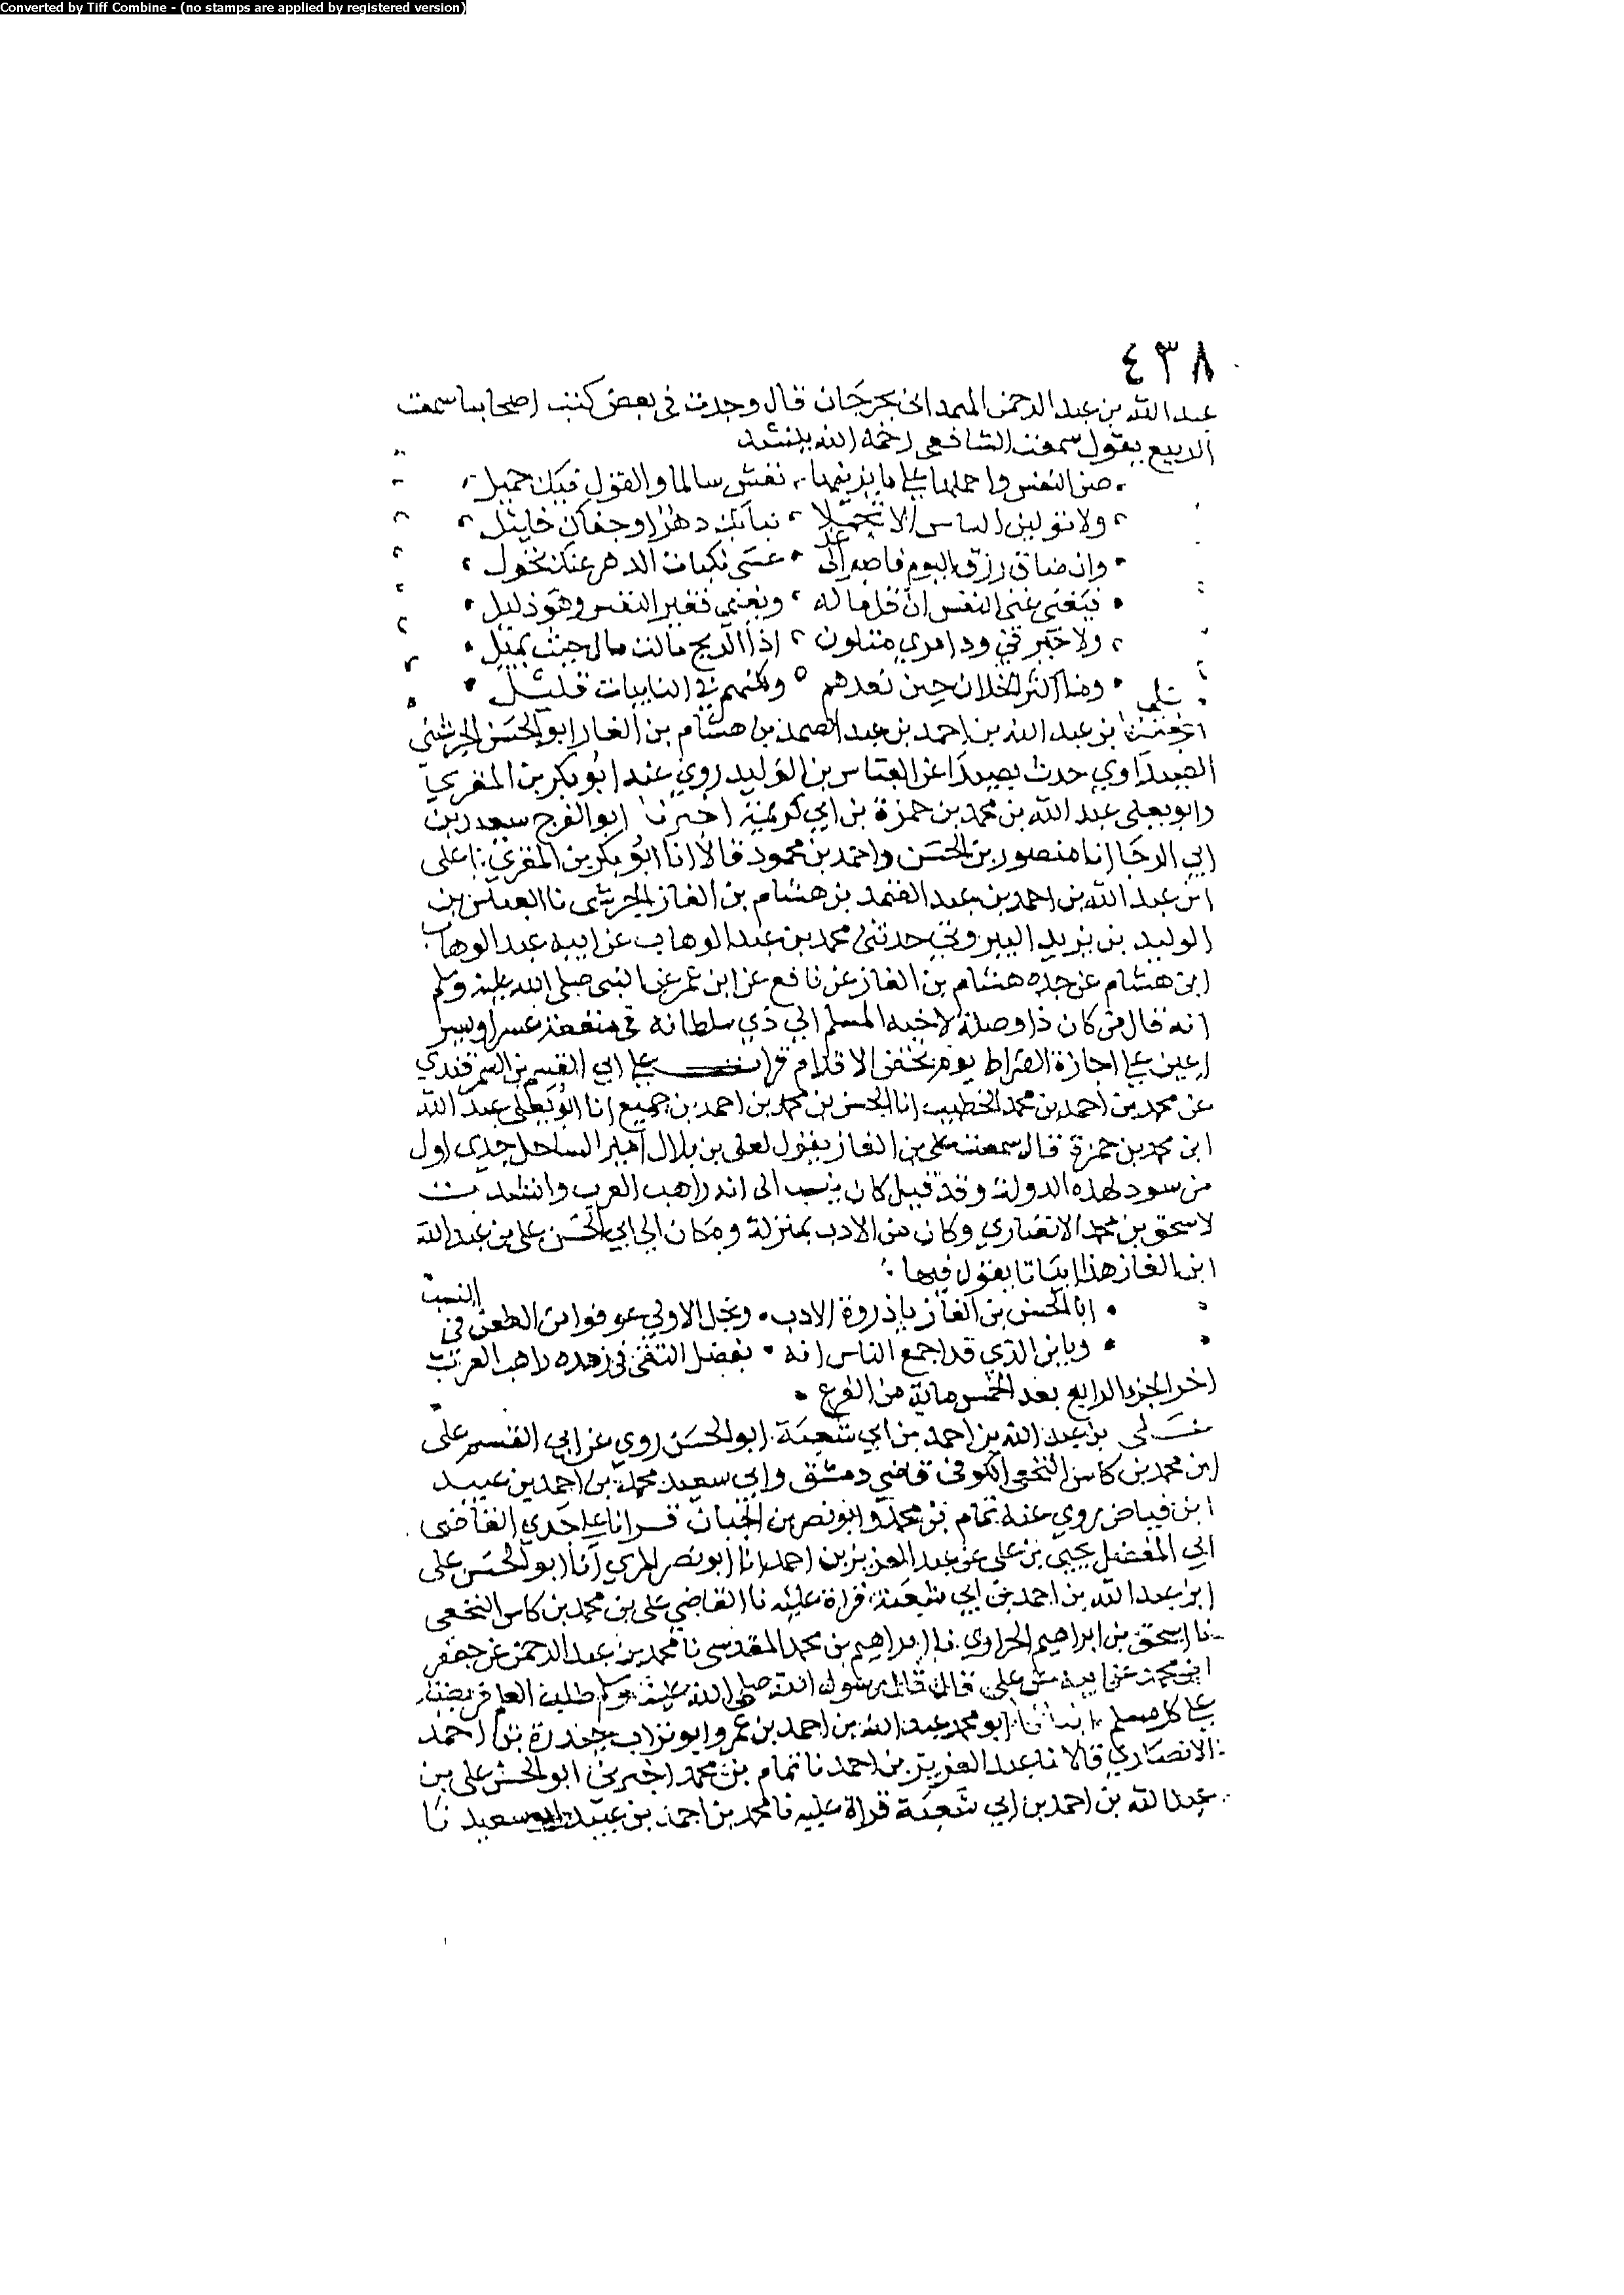 Converted by Tiff Combine - (no stamps are applied by registered version)
٤٣٨
عبد الله بن عبد الرحمن الهمداني بجرجان قال وجدت في بعض كتب اصحابنا سمعت
الربيع يقول سمعت الشافعي رحمه الله ينشد
صن النفس واحملها على ما يزينها تعش سالما والقول فيك جميل
ولا تولين الناس الا تجملا نبا بك دهر او جفاك خليل
وان ضاق رزق اليوم فاصبر الى غد عسى نكبات الدهر عنك تحول
فيغنى غني النفس ان قل ماله ويغنى فقير النفس وهو ذليل
ولا خير في ود امري متلون اذا الريح مالت مال حيث تميل
وما اكثر الخلان حين تعدهم ولكنهم في النايبات قليل
علي بن عبد الله بن احمد بن عبد الصمد بن هشام بن الغاز ابو الحسن الجرشي
الصيداوي حدث بصيدا عن العباس بن الوليد روي عنه ابو بكر بن المقري
وابو يعلى عبد الله بن محمد بن حمزة بن ابي كريمة اخبرنا ابو الفرج سعيد بن
ابي الرجا انا منصور بن الحسن واحمد بن محمود قالا انا ابو بكر بن المقري نا على
ابن عبد الله بن احمد بن عبد الصمد بن هشام بن الغاز الجرشي نا العباس بن
الوليد بن يزيد البيروتي حدثني محمد بن عبد الوهاب عن ابيه عبد الوهاب
ابن هشام عن جده هشام بن الغاز عن نافع عن ابن عمر عن النبى صلى الله عليه وسلم
انه قال من كان ذا وصلة لاخيه المسلم الي ذي سلطانه في منفعة عسر او يسر
اعين علي اجازة الصراط يوم تدحض الاقدام قرات علي ابي القسم بن السمرقندي
عن محمد بن احمد بن محمد الخطيب انا الحسن بن محمد بن احمد بن جميع انا ابو يعلى عبد الله
ابن محمد بن حمزة قال سمعت علي بن الغاز يقول لعلى بن بلال امير الساحل جدي اول
من سود لهذه الدولة وقد قيل كان ينسب الى انه راهب العرب وانشدت
لاسحق بن محمد الانصاري وكان من الادب بمنزلة ومكان الي ابي الحسن على بن عبد الله
ابن الغاز هذا ابياتا يقول فيها
ابا الحسن بن الغاز يا ذروة الادب ونجل الاولي عوفوا من الطعن في النسب
ويا ابن الذي قد اجمع الناس انه بفضل التقى في زهده راهب العرب
اخر الجزء الرابع بعد الخمس ماية من الفرع
علي بن عبد الله بن احمد بن ابي شعبة ابو الحسن روي عن ابي القسم على
ابن محمد بن كاس النخعى الكوفى قاضي دمشق وابي سعيد محمد بن احمد بن عبيد
ابن فياض روي عنه تمام بن محمد وابو نصر بن الجبان قرانا على جدي القاضى
ابي المفضل يحيى بن على عن عبد العزيز بن احمد انا ابو نصر المري انا ابو الحسن على
ابن عبد الله بن احمد بن ابي شعبة قراة عليه نا القاضي على بن محمد بن كاس النخعى
نا اسحق بن ابراهيم الحراوي نا ابراهيم بن محمد المقدسى نا محمد بن عبد الرحمن عن جعفر
ابن محمد عن ابيه عن على قال قال رسول الله صلى الله عليه وسلم طلب العلم فريضة
علي كل مسلم انبانا ابو محمد عبد الله بن احمد بن عمر وابو تراب حيدرة بن احمد
الانصاري قالا نا عبد العزيز بن احمد نا تمام بن محمد اخبرني ابو الحسن على بن
عبد الله بن احمد بن ابي شعبة قراة عليه نا محمد بن احمد بن عبيد ابو سعيد نا